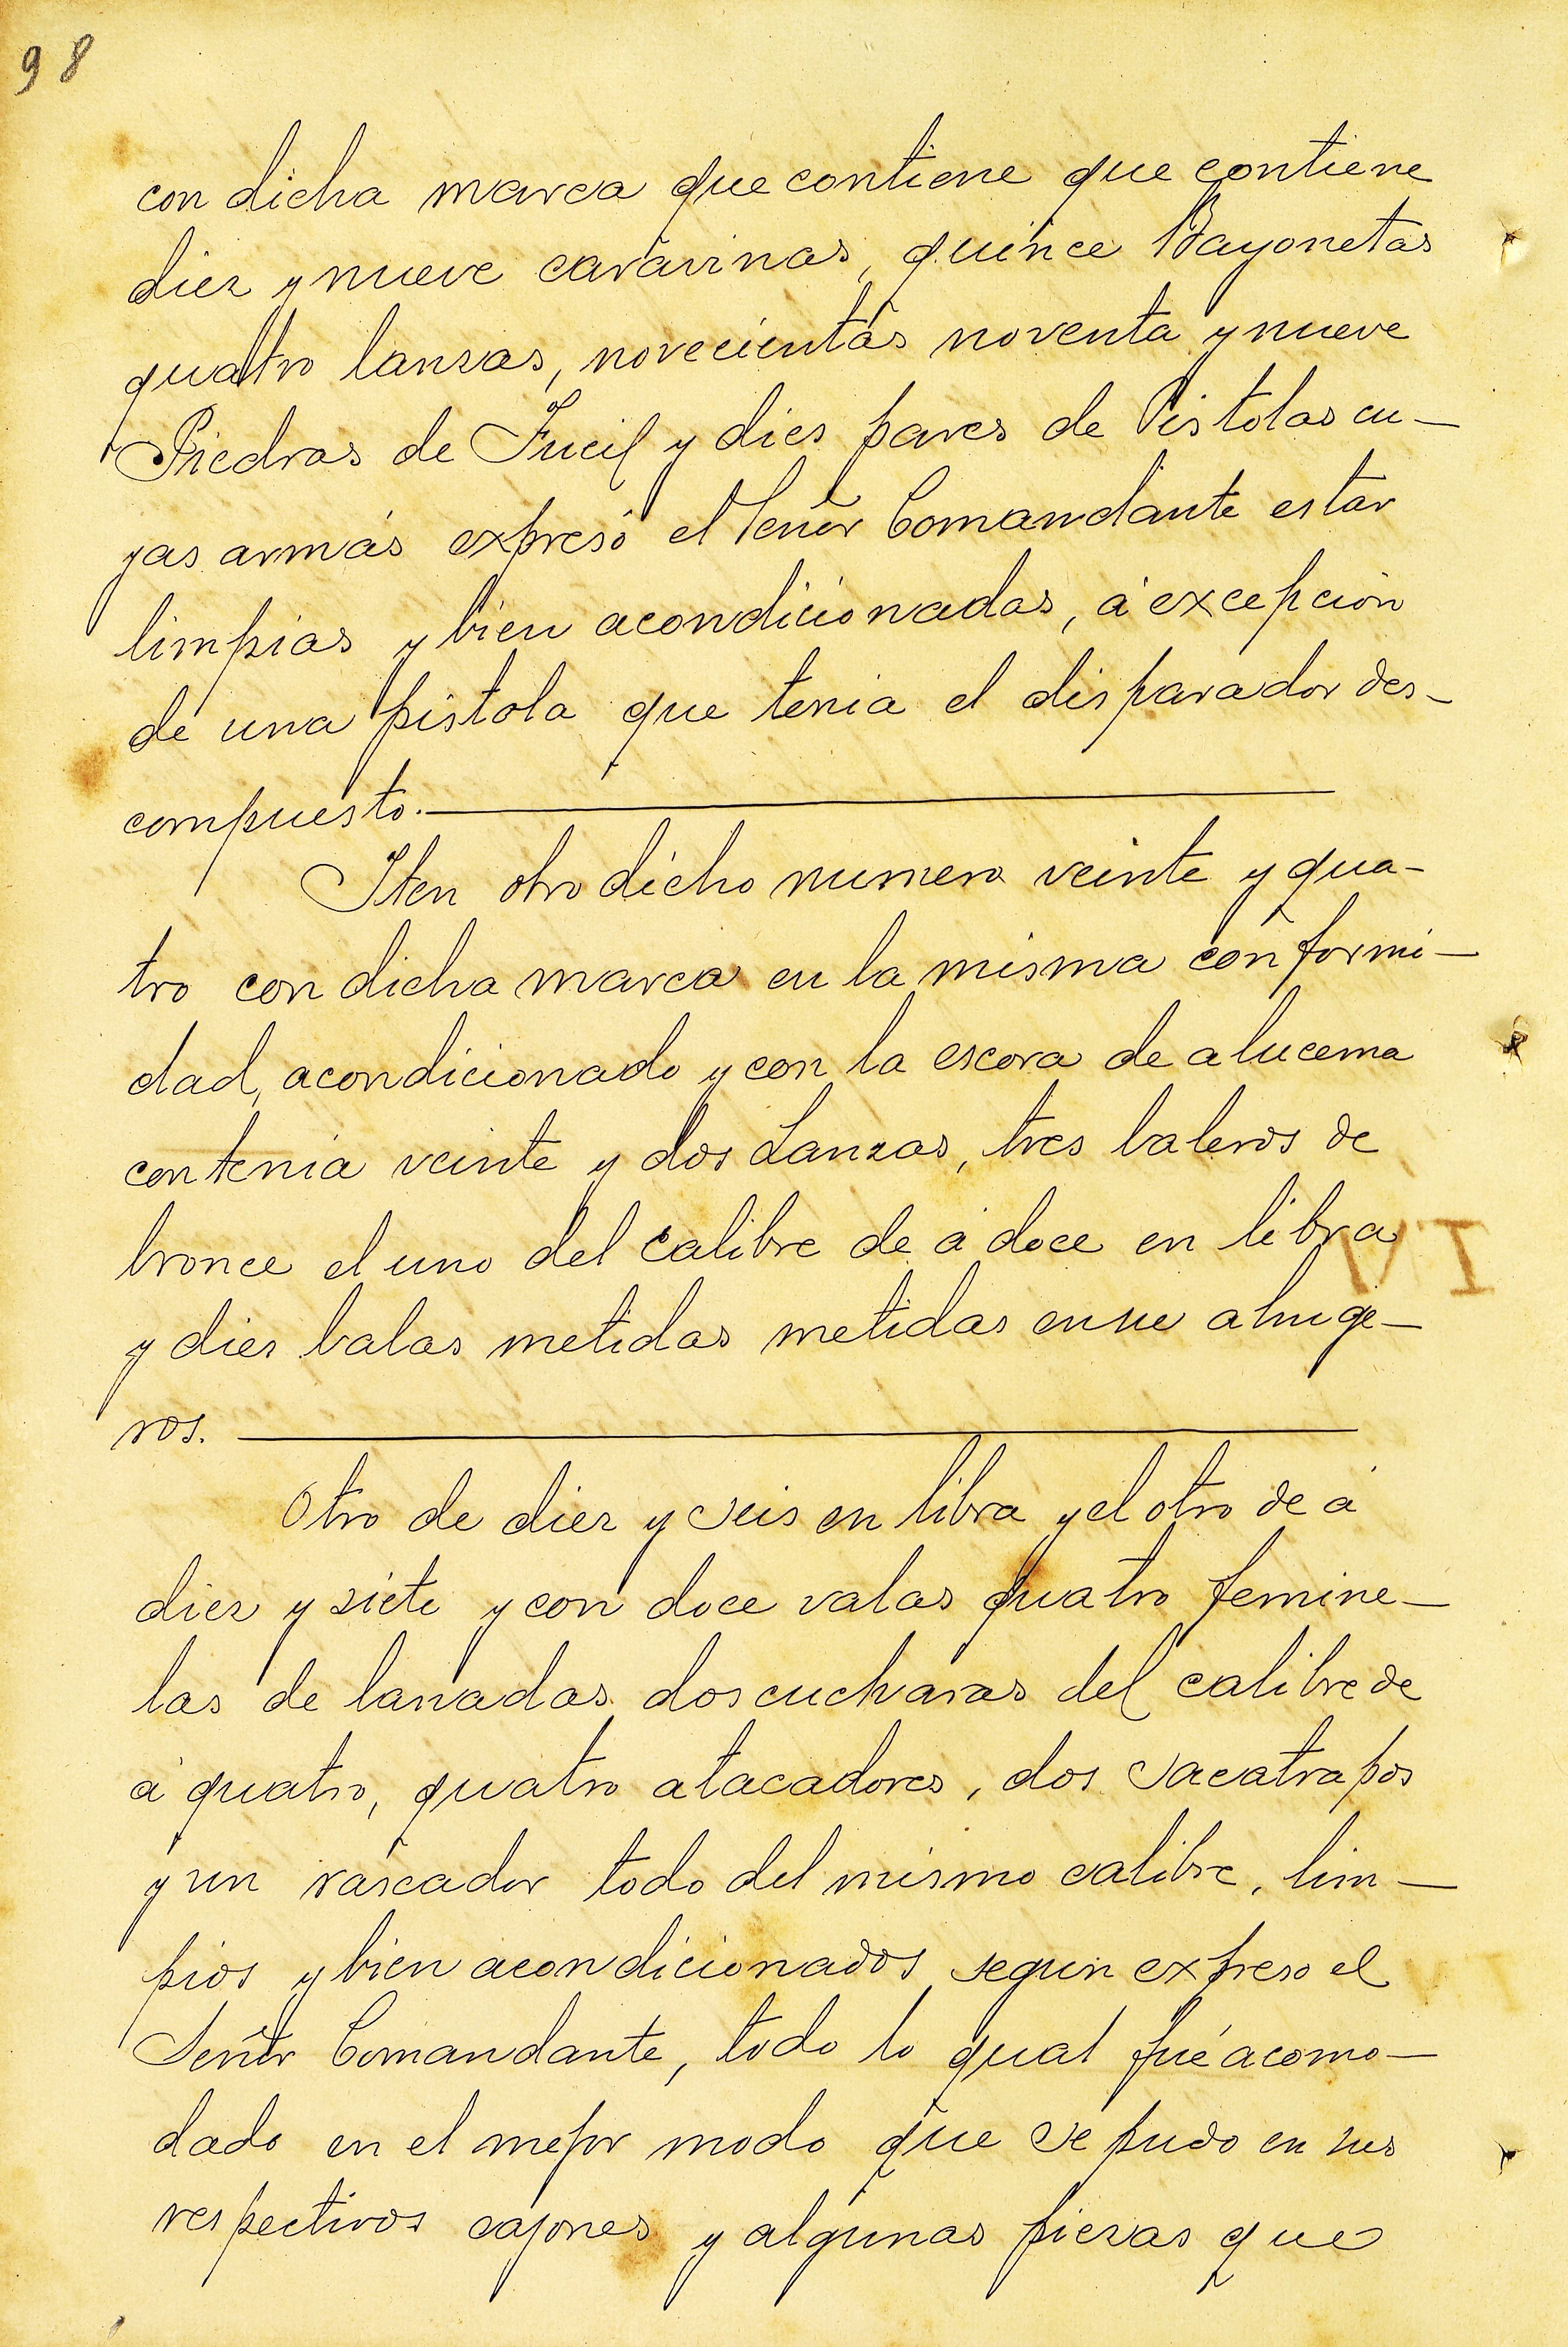 98
con dicha marca que contiene que contiene
diez y nueve caravinas, quince Bayonetas
quatro lanzas, novecientas noventa y nueve
Piedras de Fucil y dies pares de Pistolas cu-
yas armás expresó el Señor Comandante estar
limpias y bien acondicionadas, á excepcion
de una pistola que tenia el disparador des-
compuesto.
Iten otro dicho numero veinte y qua-
tro con dicha marca en la misma conformi-
dad, acondicionado y con la escora de alucema
contenia veinte y dos Lanzas, tres baleros de
bronce el uno del calibre de á doce en libra
y diez balas metidas metidas en su ahuge-
ros.
Otro de diez y seis en libra y el otro de á
diez y siete y con doce valas quatro femine-
las de lanadas dos cucharas del calibre de
á quatro, quatro atacadores, dos sacatrapos
y un rascador todo del mismo calibre, lim-
pios y bien acondicionados segun expreso el
Señor Comandante, todo lo qual fué acomo-
dado en el mejor modo que se pudo en sus
respectivos cajones y algunas piezas que